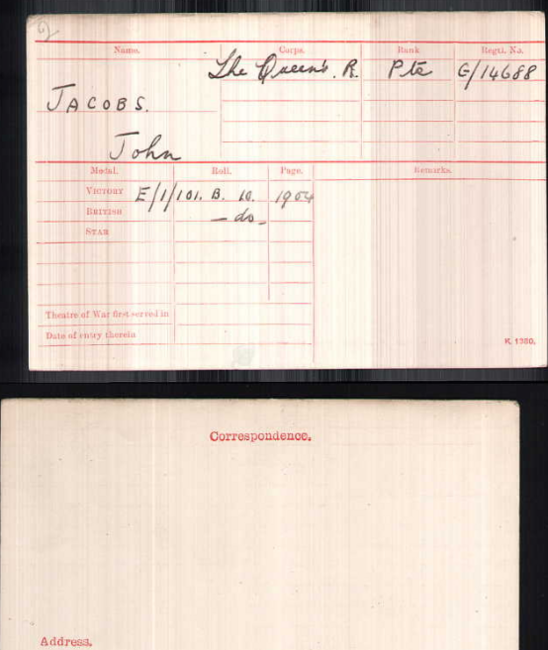 2
Name. Corps. Rank Regtl. No.
The Queen's. R. Pte G/14688
JACOBS.
John
Medal. Roll. Page. Remarks.
VICTORY E/1/101. B. 10. 1904
BRITISH — do —
STAR
Theatre of War first served in
Date of entry therein
K. 1380.
Correspondence.
Address.